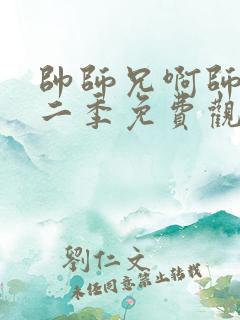 帥師兄啊師
二季免費觀
劉仁文
未经同意禁止转载